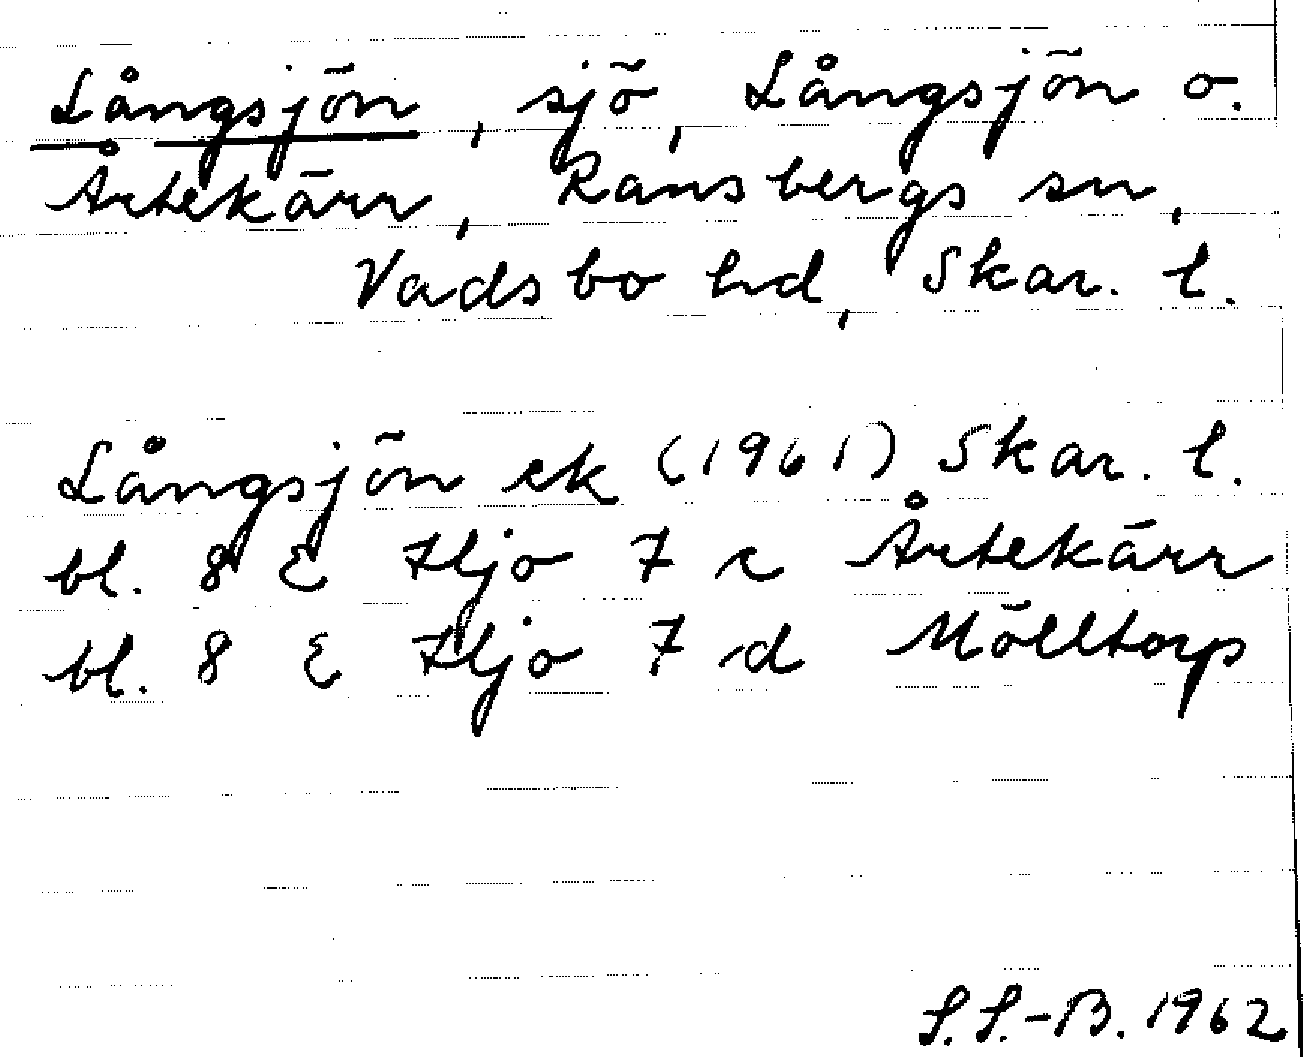 Långsjön, sjö, Långsjön o.
Årtekärr, Ransbergs sn,
Vadsbo hd, Skar. l.
Långsjön ek (1961) Skar. l.
bl. 8 E Hjo 7 c Årtekärr
bl. 8 E Hjo 7 d Mölltorp
S. S.-B. 1962